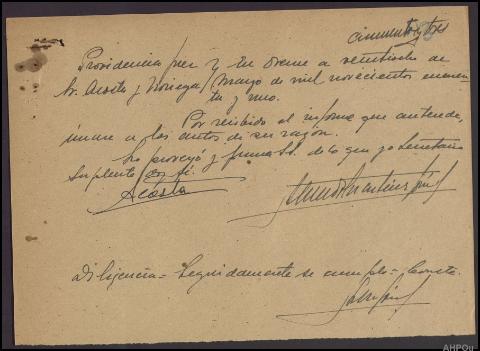 cincuenta y tres
Providencia juez y En Orense a veintiocho de
Sr. Acosta y Noriega / marzo de mil novecientos cuaren-
ta y uno.
Por recibido el informe que antecede,
únase a los autos de su razón.
Lo proveyó y firma SS. de lo que yo Secretario
suplente doy fé.
Acosta
Diligencia = Seguidamente se cumple = Consta.
AHPOu